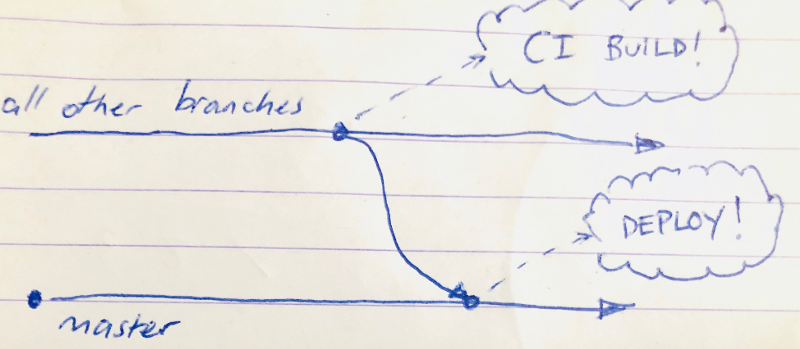 CI BUILD!
all other branches
DEPLOY!
master